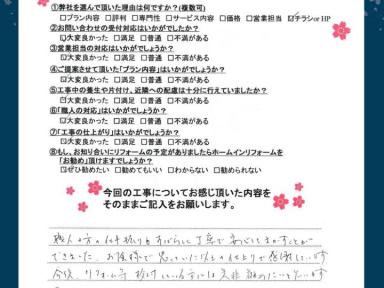 ①弊社を選んで頂いた理由は何ですか？(複数可)
□プラン内容 □評判 □専門性 □サービス内容 □価格 □営業担当 ☑チラシor HP
②お問い合わせの受付対応はいかがでしたか？
☑大変良かった □満足 □普通 □不満がある
③営業担当の対応はいかがでしょうか？
☑大変良かった □満足 □普通 □不満がある
④ご提案させて頂いた「プラン内容」はいかがでしょうか？
☑大変良かった □満足 □普通 □不満がある
⑤工事中の養生や片付け、近隣への配慮は十分に行えていましたか？
☑大変良かった □満足 □普通 □不満がある
⑥「職人の対応」はいかがでしょうか？
☑大変良かった □満足 □普通 □不満がある
⑦「工事の仕上がり」はいかがでしょうか？
☑大変良かった □満足 □普通 □不満がある
⑧もし、お知り合いにリフォームの予定がありましたらホームインリフォームを
「お勧め」頂けますでしょうか？
☑ぜひ勧めたい □勧めてもいい □わからない □勧められない
今回の工事についてお感じ頂いた内容を
そのままご記入をお願いします。
職人の方の仕事振りもすばらしく丁寧で安心してまかすことが
できました。お陰様で思っていた以上の仕上りで感謝しています
今後、リフォーム等 検討している方には是非勧めたいと思います